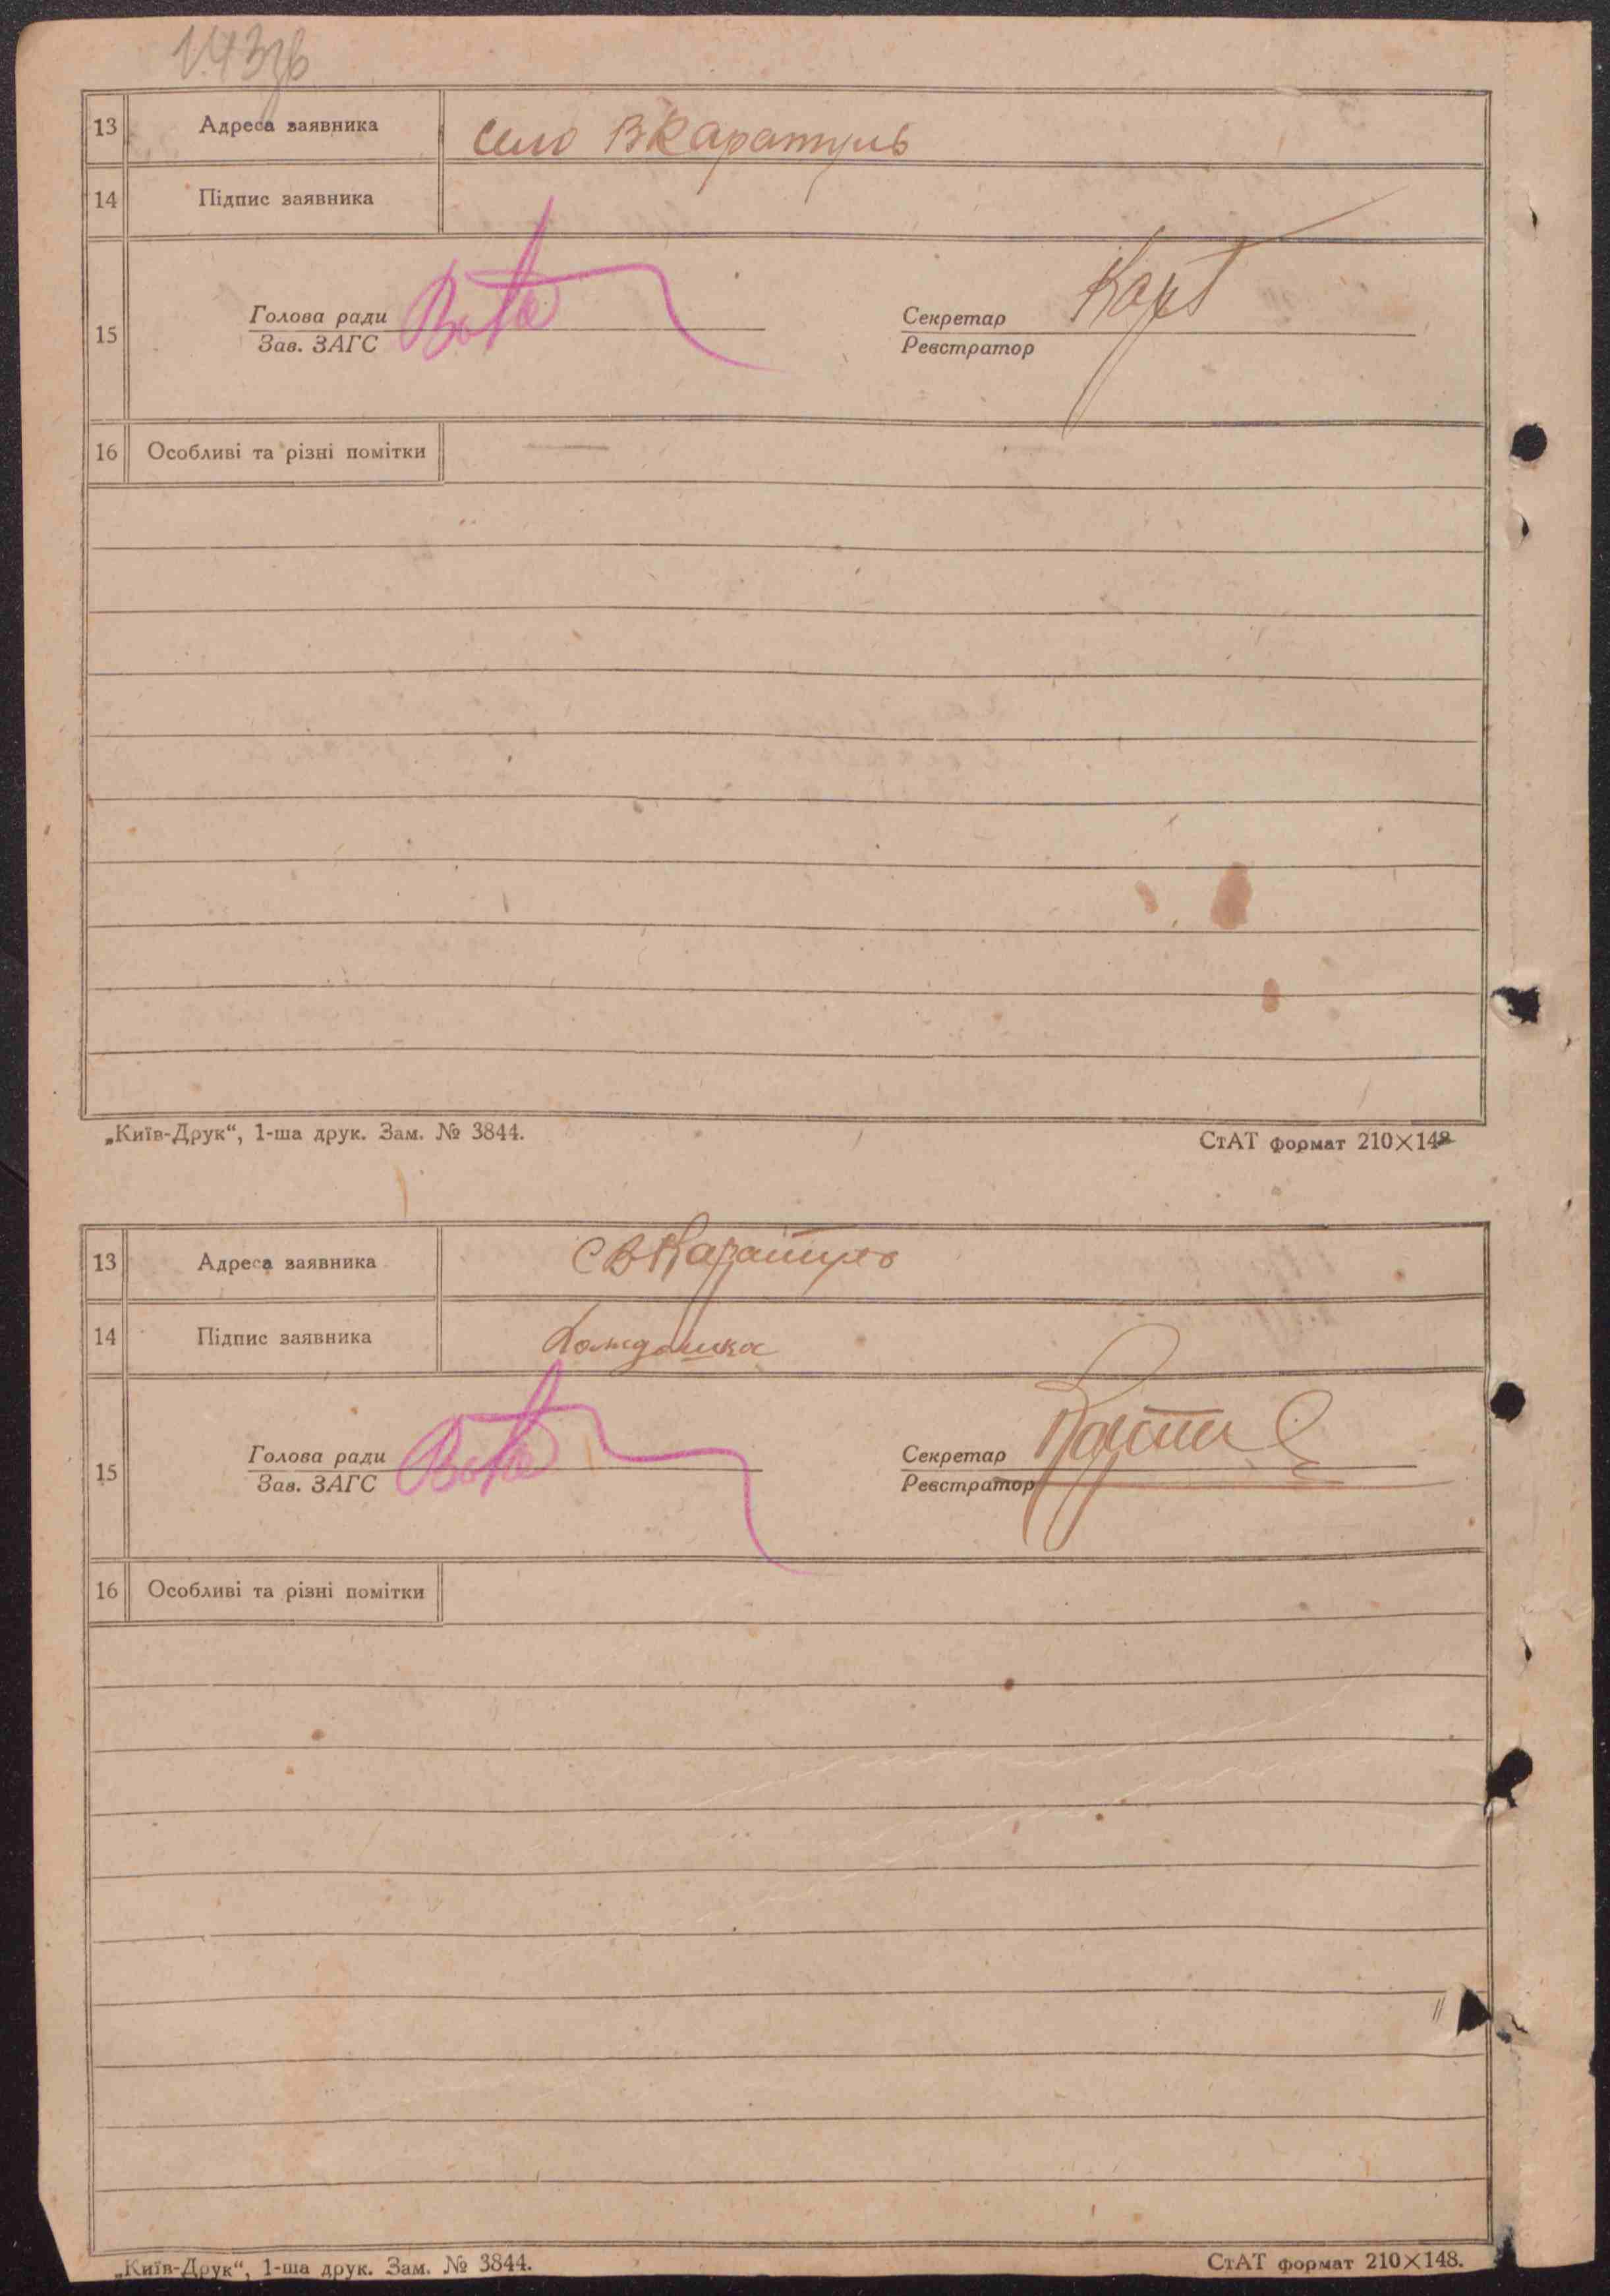 143зв
13 Адреса заявника село ВКаратуль
14 Підпис заявника
15 Голова ради Секретар
Зав. ЗАГС Реєстратор
16 Особливі та різні помітки —
„Київ-Друк“, 1-ша друк. Зам. № 3844. СтАТ формат 210×148
13 Адреса заявника С ВКаратуль
14 Підпис заявника
15 Голова ради Секретар
Зав. ЗАГС Реєстратор
16 Особливі та різні помітки
„Київ-Друк“, 1-ша друк. Зам. № 3844. СтАТ формат 210×148.